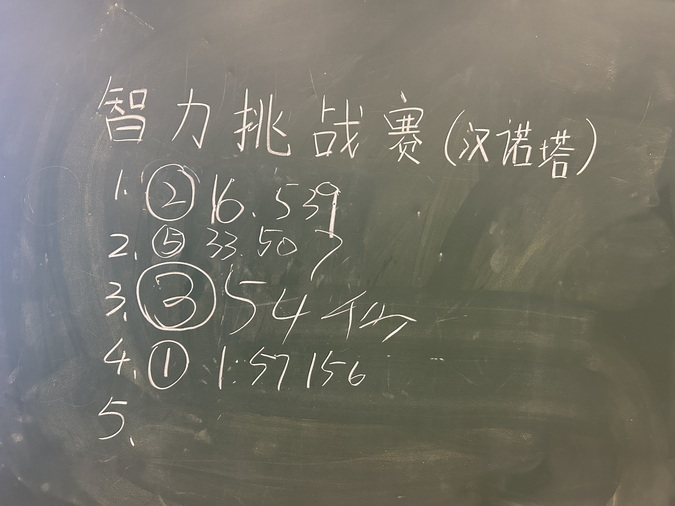 智力挑战赛(汉诺塔)
1. ② 16.539
2. ⑤ 33.507
3. ③ 54
4. ① 1:57 156
5.